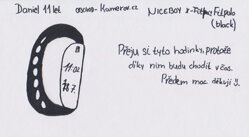 Daniel 11 let
NICEBOY X-Fit
(black)
11:02
Přeju si tyto hodinky, protože
díky nim budu chodit včas.
Předem moc děkuji